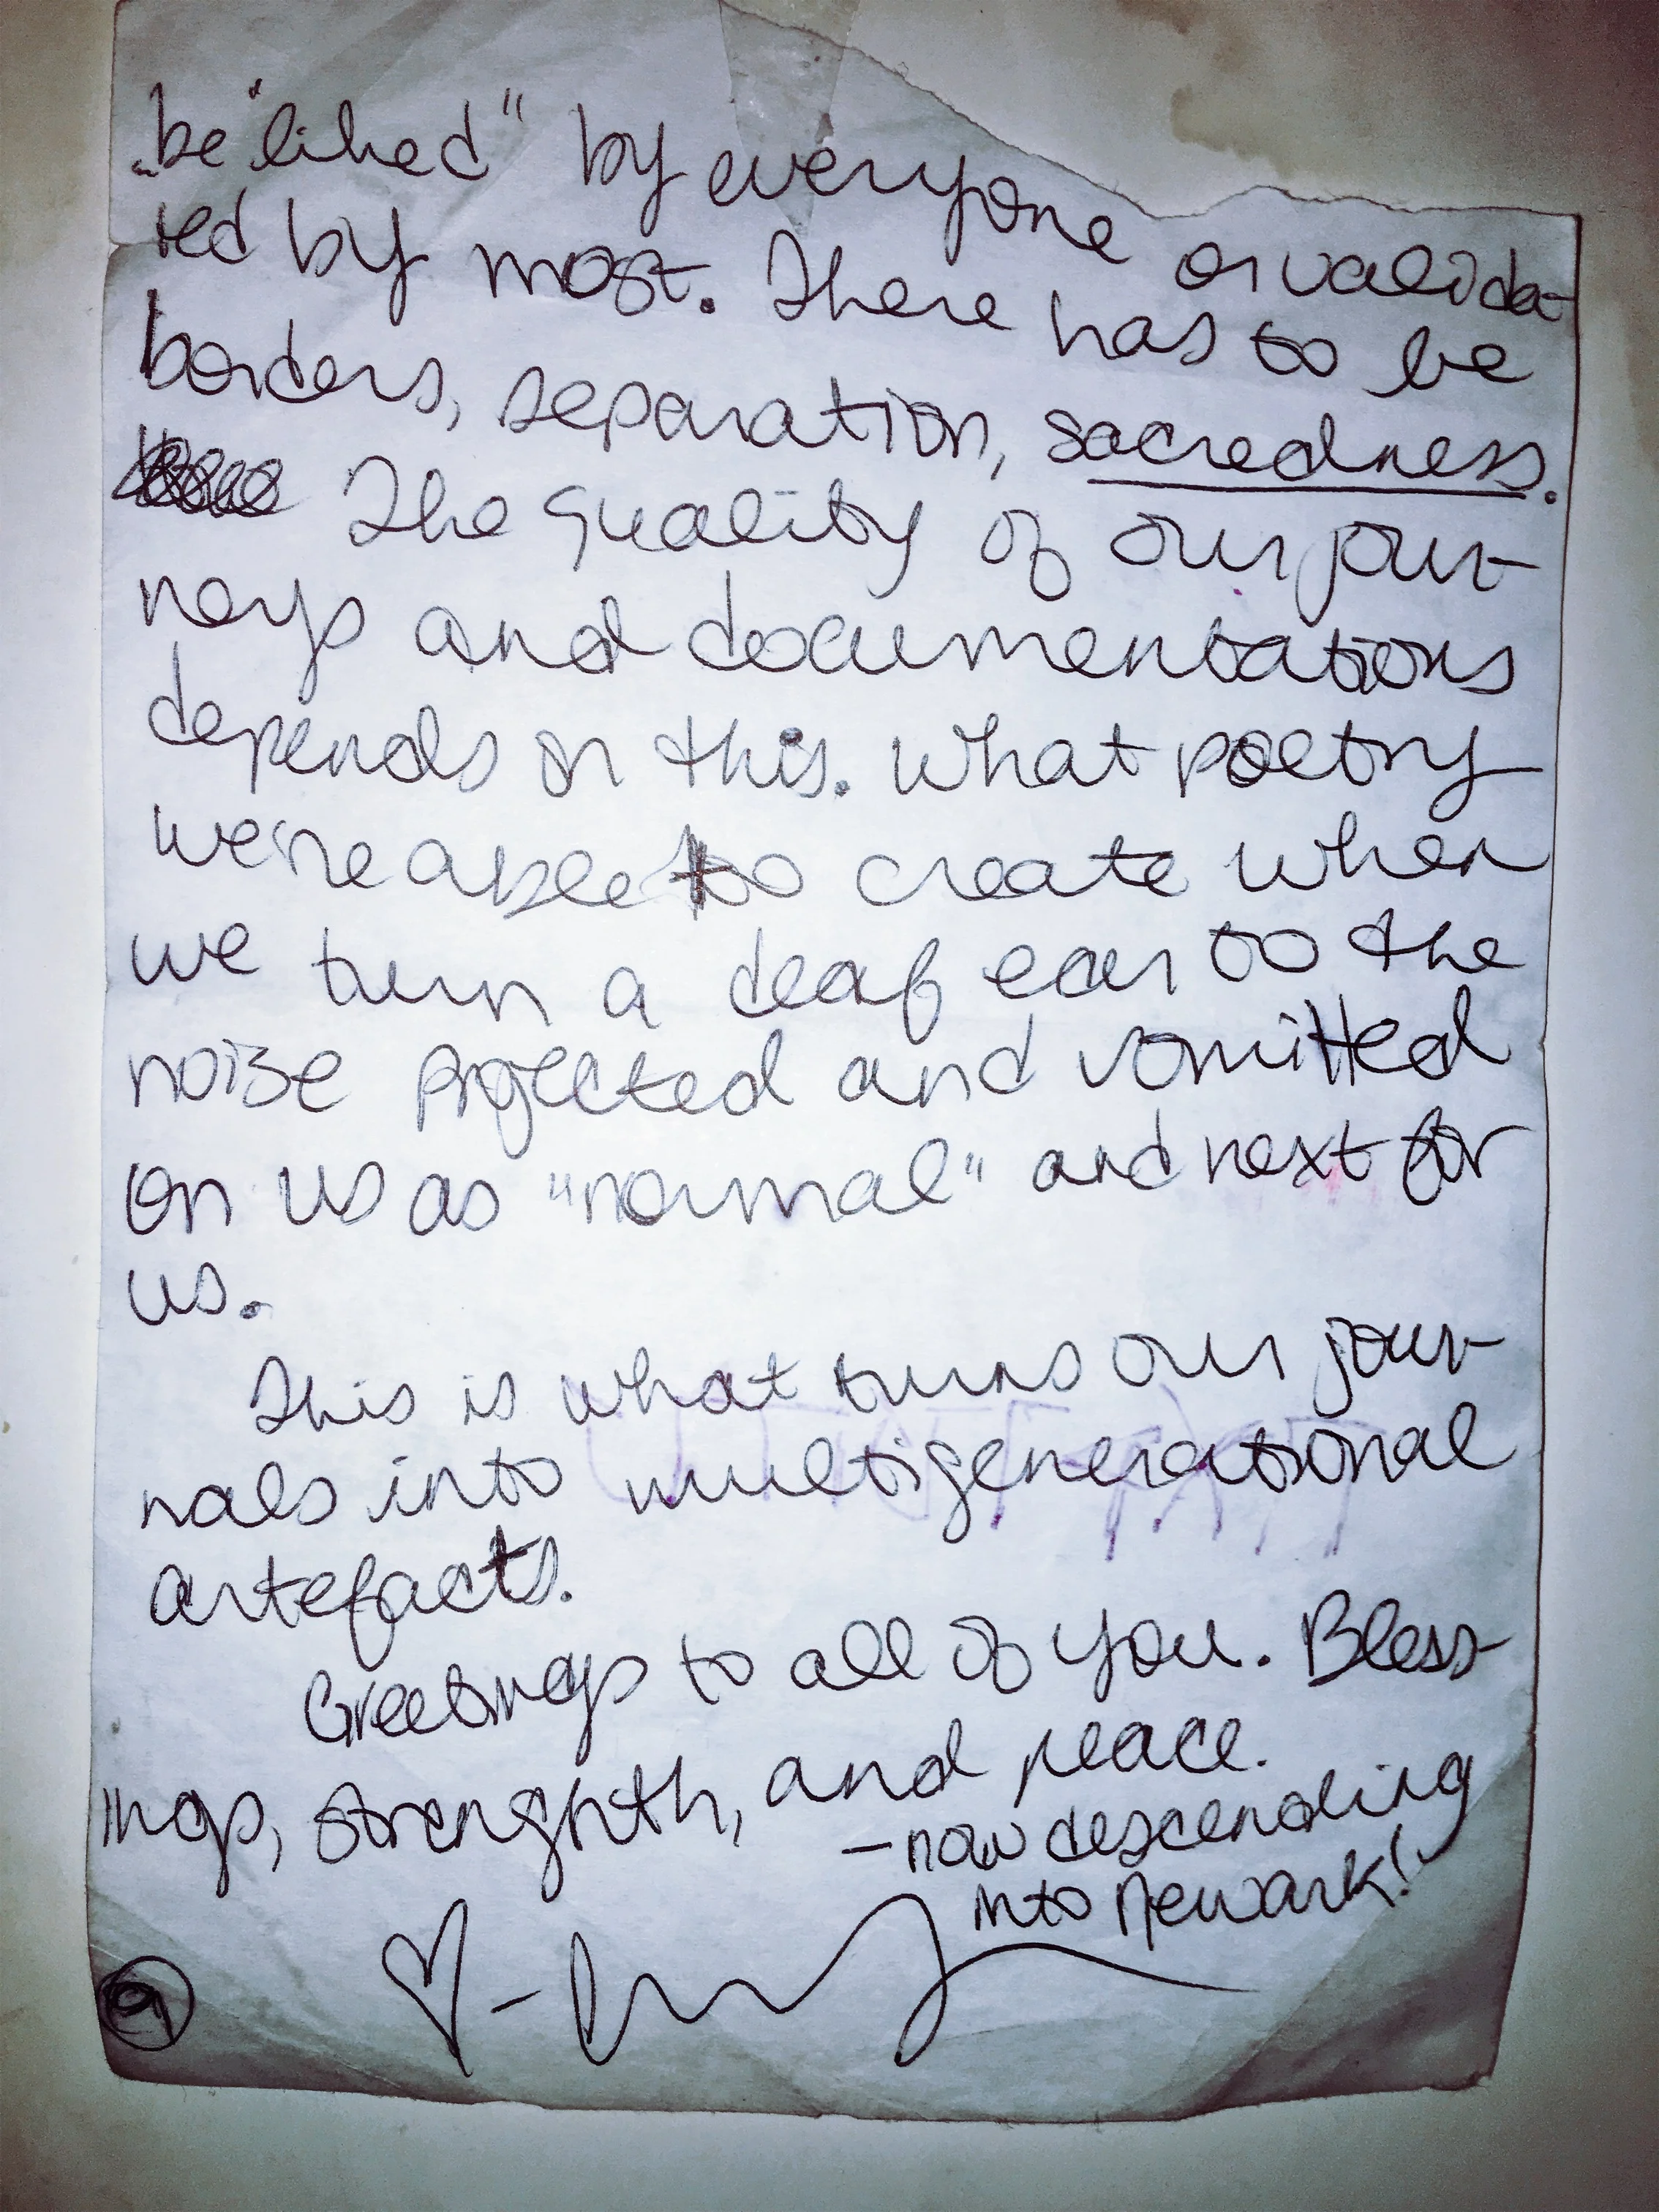 be "liked" by everyone or valida-
ted by most. There has to be
borders, separation, sacredness.
The quality of our jour-
neys and documentations
depends on this. What poetry
we're able to create when
we turn a deaf ear to the
noise projected and vomitted
on us as "normal" and next for
us.
This is what turns our jour-
nals into multigenerational
artefacts.
Greetings to all of you. Bless-
ings, strenghth, and peace.
- now descending
into Newark!
9